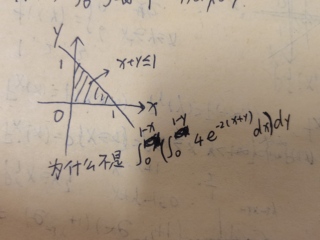 y
1
x+y≤1
0
1
x
为什么不是 ∫₀^{1-x}(∫₀^{1-y} 4e^{-2(x+y)} dx)dy